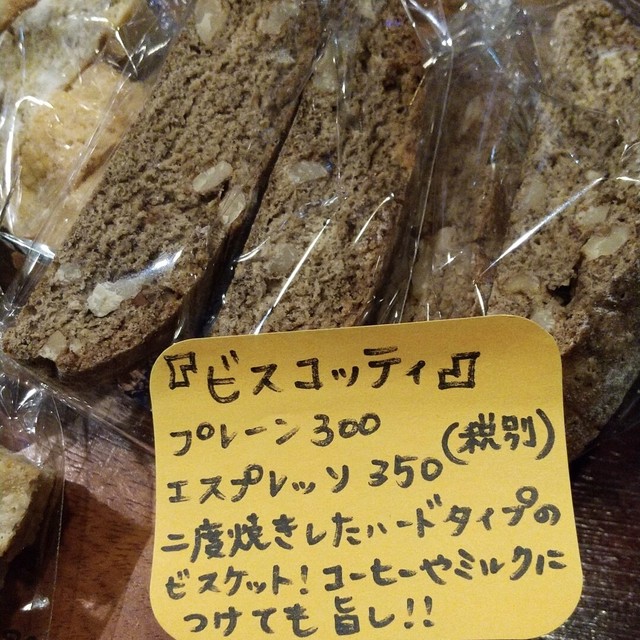 『ビスコッティ』
プレーン 300
エスプレッソ 350 (税別)
二度焼きしたハードタイプの
ビスケット! コーヒーやミルクに
つけても旨し!!